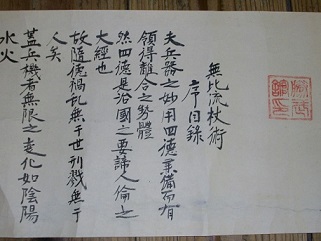 無比流杖術
序目錄
夫兵器之妙用四德兼備而有
領得離合之勢體
然四德是治國之要諦人倫之
大經也
故隨德禍乱無于世刑戮無于
人矣
蓋兵機者無限之变化如陰陽
水火